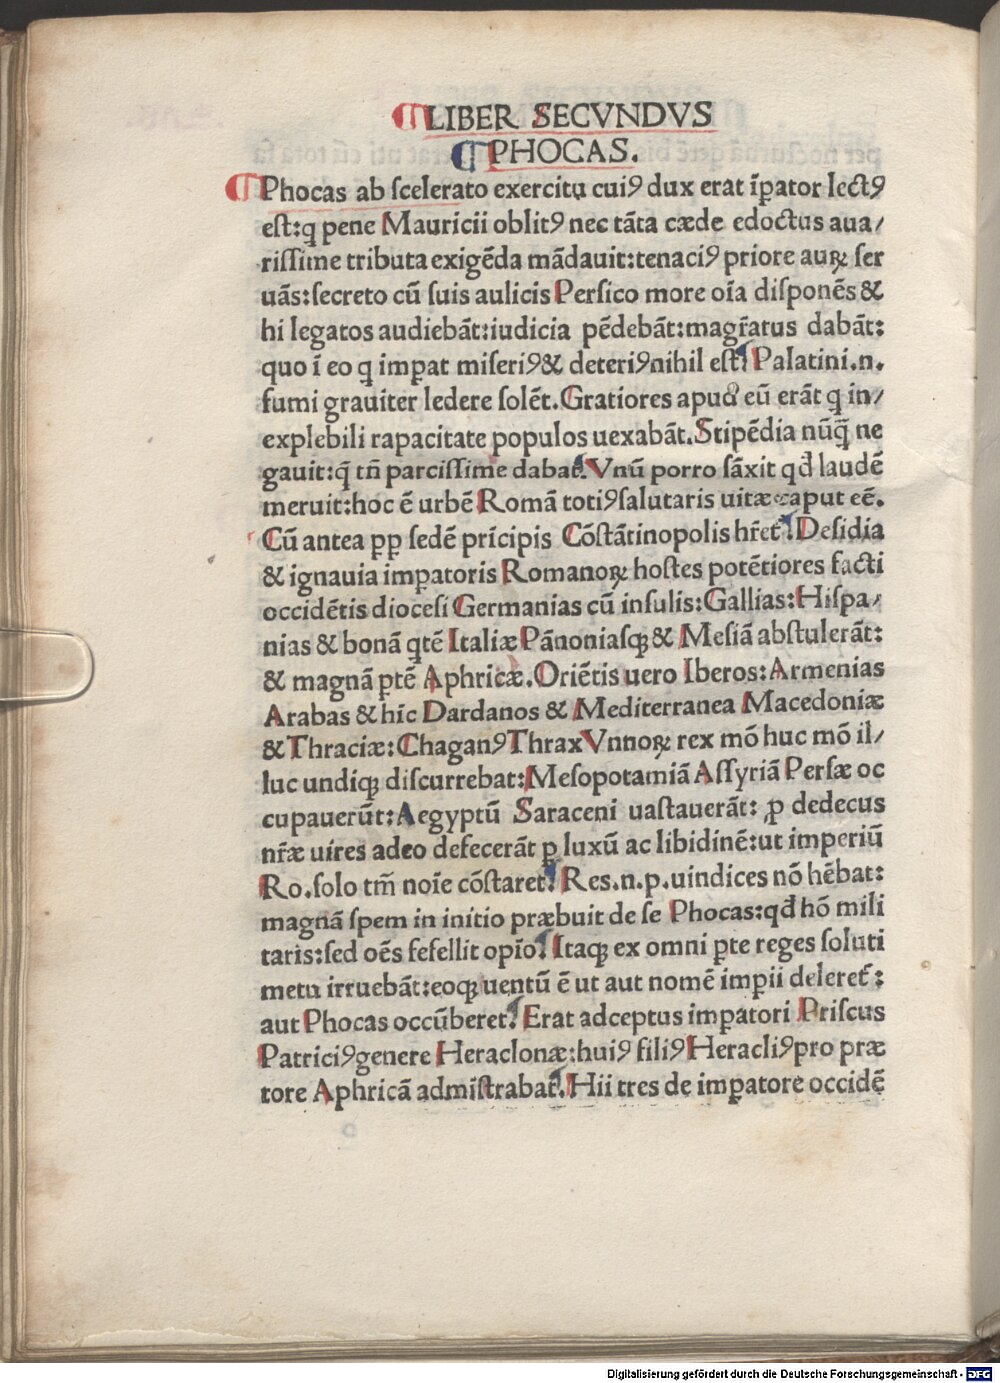 LIBER SECVNDVS
PHOCAS.
Phocas ab ſcelerato exercitu cuiꝰ dux erat īꝑator lectꝰ
eſt: ꝗ pene Mauricii oblitꝰ nec tāta cæde edoctus aua/
riſſime tributa exigēda mādauit: tenaciꝰ priore auꝝ ſer
uās: ſecreto cū ſuis aulicis Perſico more oīa diſponēs &
hi legatos audiebāt: iudicia pēdebāt: magr̄atus dabāt:
quo ī eo ꝗ imꝑat miſeriꝰ & deteriꝰ nihil eſt. Palatini .n.
fumi grauiter ledere ſolēt. Gratiores apud eū erāt ꝗ in/
explebili rapacitate populos uexabāt. Stipēdia nūꝗ̄ ne
gauit: ꝗ̄ tn̄ parciſſime dabat. Vnū porro ſāxit qđ laudē
meruit: hoc ē urbē Romā totiꝰ ſalutaris uitæ caput eē.
Cū antea ꝓꝑ ſedē prīcipis Cōſtātinopolis hr̄et. Deſidia
& ignauia imꝑatoris Romanoꝝ hoſtes potētiores facti
occidētis dioceſi Germanias cū inſulis: Gallias: Hiſpa/
nias & bonā ꝑtē Italiæ Pānoniaſꝗ & Meſiā abſtulerāt:
& magnā ꝑtē Aphricæ. Oriētis uero Iberos: Armenias
Arabas & hīc Dardanos & Mediterranea Macedoniæ
& Thraciæ: Chaganꝰ Thrax Vnnoꝝ rex mō huc mō il/
luc undiꝗ diſcurrebat: Meſopotamiā Aſſyriā Perſæ oc
cupauerūt: Aegyptū Saraceni uaſtauerāt: ꝓ dedecus
nr̄æ uires adeo defecerāt ꝑ luxū ac libidinē: ut imperiū
Ro. ſolo tm̄ noīe cōſtaret. Res .n. p. uindices nō hēbat:
magnā ſpem in initio præbuit de ſe Phocas: qđ hō mili
taris: ſed oēs fefellit opīo. Itaꝗ ex omni ꝑte reges ſoluti
metu irruebāt: eoꝗ uentū ē ut aut nomē impii deleret:
aut Phocas occūberet. Erat adceptus imꝑatori Priſcus
Patriciꝰ genere Heraclonæ: huiꝰ filiꝰ Heracliꝰ pro præ
tore Aphricā admīſtrabat. Hii tres de imꝑatore occidē
Digitalisierung gefördert durch die Deutsche Forschungsgemeinschaft - DFG